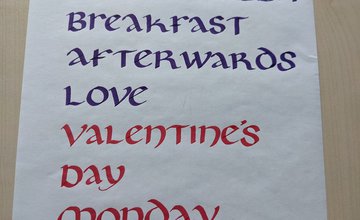 Breakfast
Afterwards
Love
Valentine's
Day
Monday